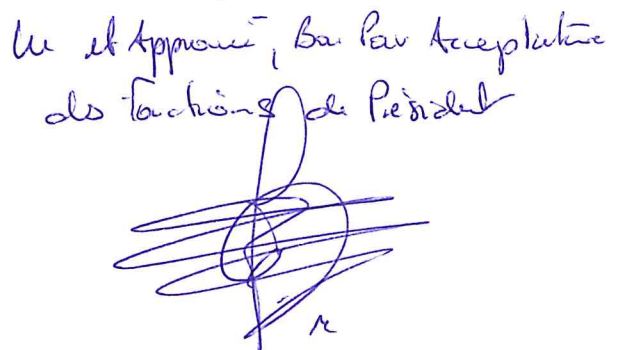 Lu et Approuvé, Bon Pour Acceptation
des fonctions de Président